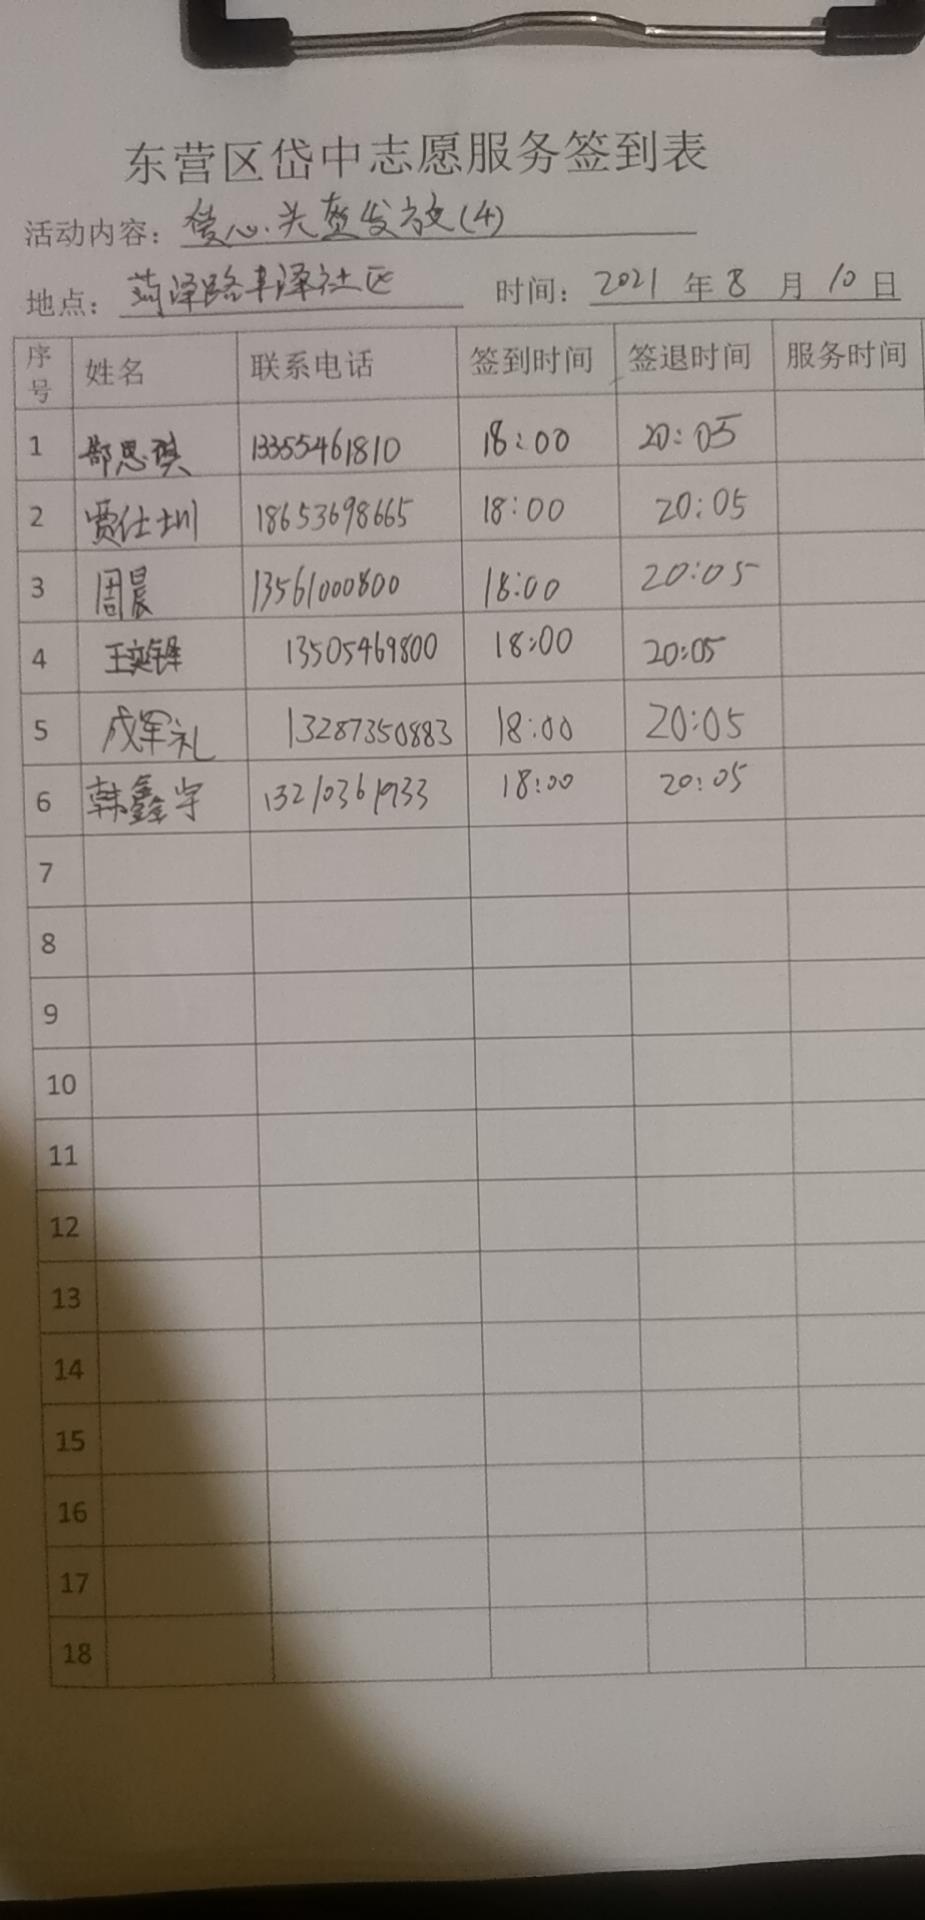 东营区岱中志愿服务签到表
活动内容：爱心头盔发放(4)
地点：菏泽路丰泽社区 时间：2021年8月10日
序号 姓名 联系电话 签到时间 签退时间 服务时间
1 郜思琪 13355461810 18:00 20:05
2 贾仕圳 18653698665 18:00 20:05
3 周晨 13561000800 18:00 20:05
4 王奕铎 13505469800 18:00 20:05
5 成军礼 13287350883 18:00 20:05
6 韩鑫宇 13210361933 18:00 20:05
7
8
9
10
11
12
13
14
15
16
17
18